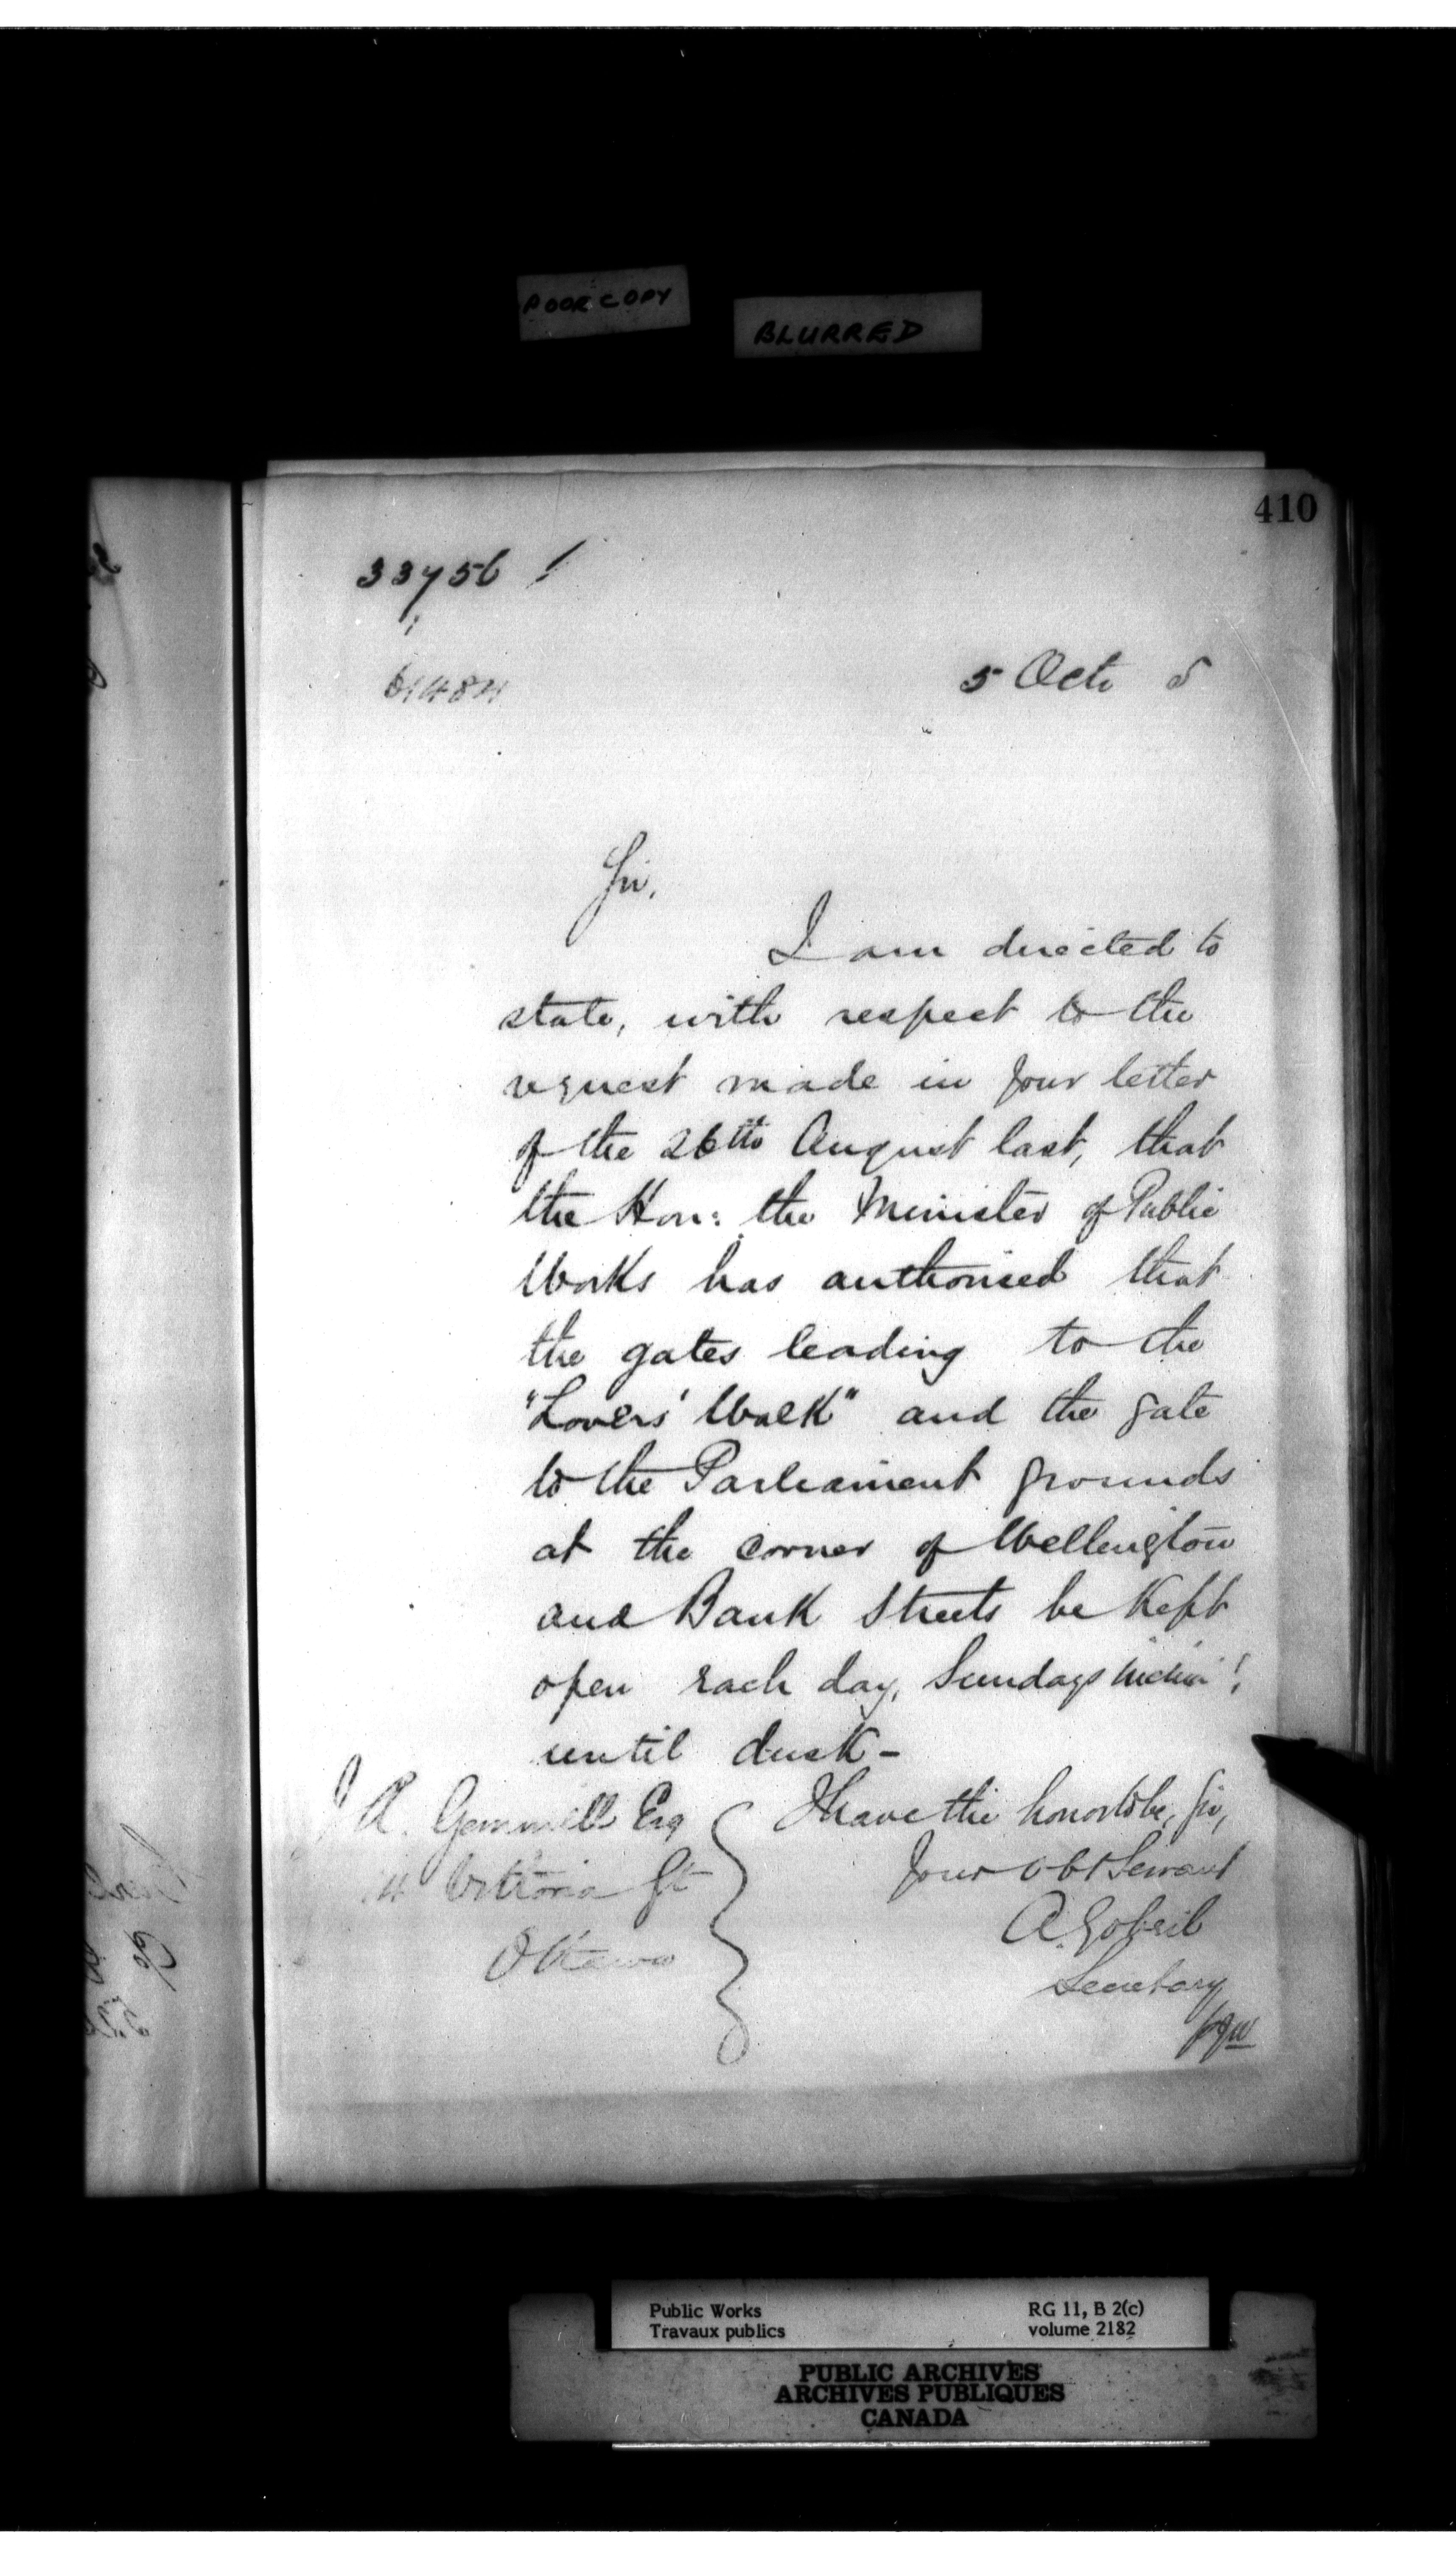 POOR COPY
BLURRED
410
33756
5 Octr 5
Sir,
I am directed to
state, with respect to the
request made in your letter
of the 26th August last, that
the Hon: the Minister of Public
Works has authorised that
the gates leading to the
"Lovers' Walk" and the gate
to the Parliament grounds
at the corner of Wellington
and Bank Streets be kept
open each day, Sundays
until dusk -
I have the honor to be, Sir,
Your obt Servant
A. Gobeil
Secretary
J A. Gemmell Esq
Victoria St
Ottawa
Public Works
Travaux publics
RG 11, B 2(c)
volume 2182
PUBLIC ARCHIVES
ARCHIVES PUBLIQUES
CANADA